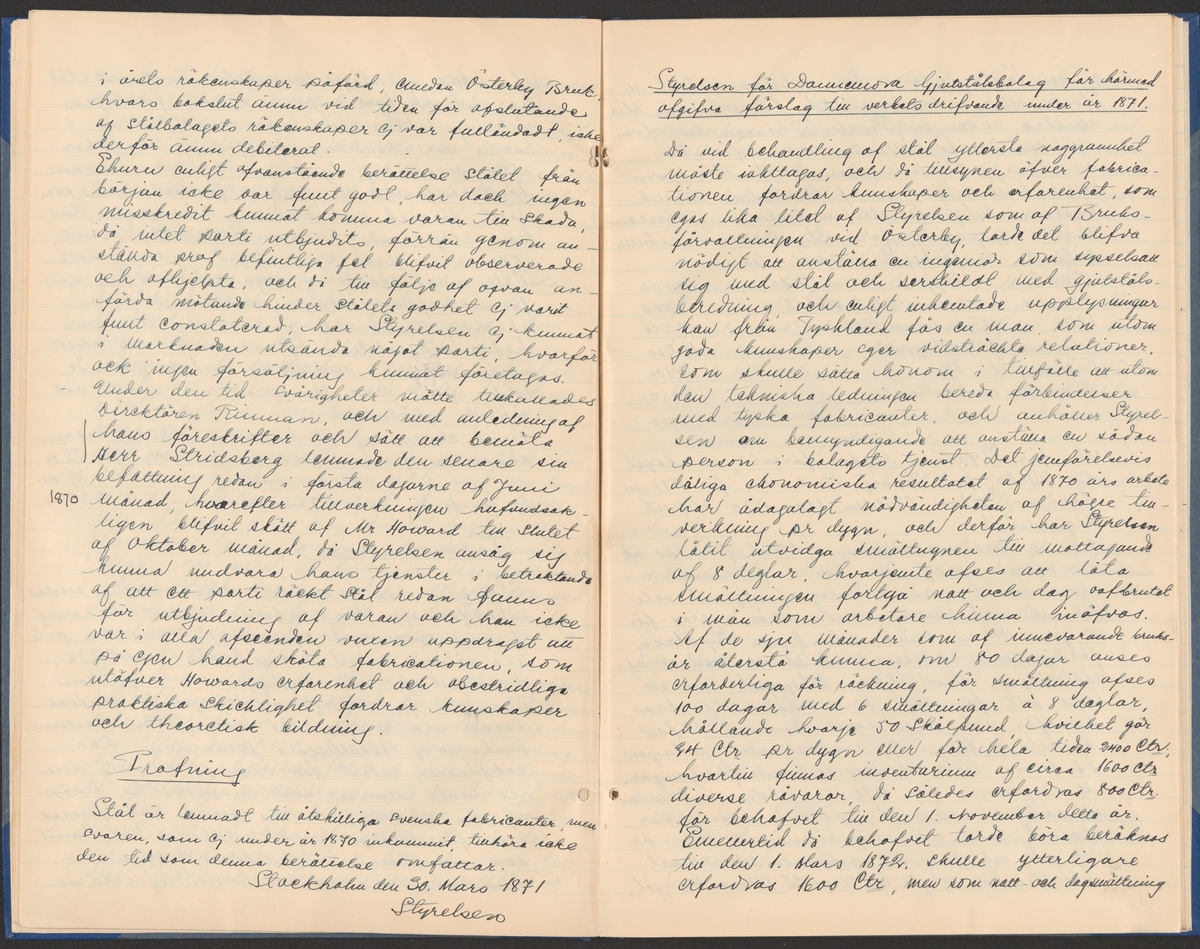 i årets räkenskaper påförd, emedan Österby Bruk,
hvars bokslut ännu vid tiden för afslutande
af Stålbolagets räkenskaper ej var fulländadt, icke
derför ännu debiterat.
Ehuru enligt ofvanstående berättelse Stålet från
början icke var fullt godt, har dock ingen
misskredit kunnat komma varan till skada,
då intet parti utbjudits, förrän genom an-
stälda prof befintliga fel blifvit observerade
och afhjelpta, och då till följe af ofvan an-
förda mötande hinder stålets godhet ej varit
fullt constaterad, har Styrelsen ej kunnat
i marknaden utsända något parti, hvarför
ock ingen försäljning kunnat företagas.
Under den tid svårigheter mötte tillkallades
Direktören Rinman, och med anledning af
hans föreskrifter och sätt att bemöta
Herr Stridsberg lemnade den senare sin
befattning redan i första dagarne af Juni
1870 månad, hvarefter tillverkningen hufvudsak-
ligen blifvit skött af Mr Howard till slutet
af Oktober månad, då Styrelsen ansåg sig
kunna undvara hans tjenster i betraktande
af att ett parti räckt Stål redan fanns
för utbjudning af varan och han icke
var i alla afseenden vuxen uppdraget att
på egen hand sköta fabricationen, som
utöfver Howards erfarenhet och obestridliga
praktiska Skicklighet fordrar kunskaper
och theoretisk bildning.
Profning
Stål är lemnadt till åtskilliga svenska fabricanter, men
svaren, som ej under år 1870 inkommit, tillhöra icke
den tid som denna berättelse omfattar.
Stockholm den 30. Mars 1871
Styrelsen
Styrelsen för Dannemora Gjutstålsbolag får härmed
afgifva förslag till verkets drifvande under år 1871.
Då vid behandling af stål yttersta noggrannhet
måste iakttagas, och då tillsynen öfver fabrica-
tionen fordrar kunskaper och erfarenhet, som
egas lika litet af Styrelsen som af Bruks-
förvaltningen vid Österby, torde det blifva
nödigt att anställa en ingeniör som sysselsatt
sig med stål och serskildt med gjutståls-
beredning, och enligt inhemtade upplysningar
kan från Tyskland fås en man, som utom
goda kunskaper eger vidsträckta relationer,
som skulle sätta honom i tillfälle att utom
den tekniska ledningen bereda förbindelser
med tyska fabricanter, och anhåller Styrel-
sen om bemyndigande att anställa en sådan
person i bolagets tjenst. Det jemförelsevis
dåliga ekonomiska resultatet af 1870 års arbete
har ådagalagt nödvändigheten af högre till-
verkning pr dygn, och derför har Styrelsen
låtit utvidga smältugnen till mottagande
af 8 deglar, hvarjemte afses att låta
smältningen fortgå natt och dag oafbrutet
i mån som arbetare hinna inöfvas.
Af de sju månader som af innevarande bruks-
år återstå kunna, om 80 dagar anses
erforderliga för räckning, för smältning afses
100 dagar med 6 smältningar à 8 deglar,
hållande hvarje 50 Skålpund, hvilket gör
24 Ctr pr dygn eller för hela tiden 2400 Ctr,
hvartill finnas inventarium af circa 1600 Ctr
diverse råvaror, då således erfordras 800 Ctr.
för behofvet till den 1. November detta år.
Emellertid då behofvet torde böra beräknas
till den 1. Mars 1872. skulle ytterligare
erfordras 1600 Ctr, men som natt- och dagsmältning